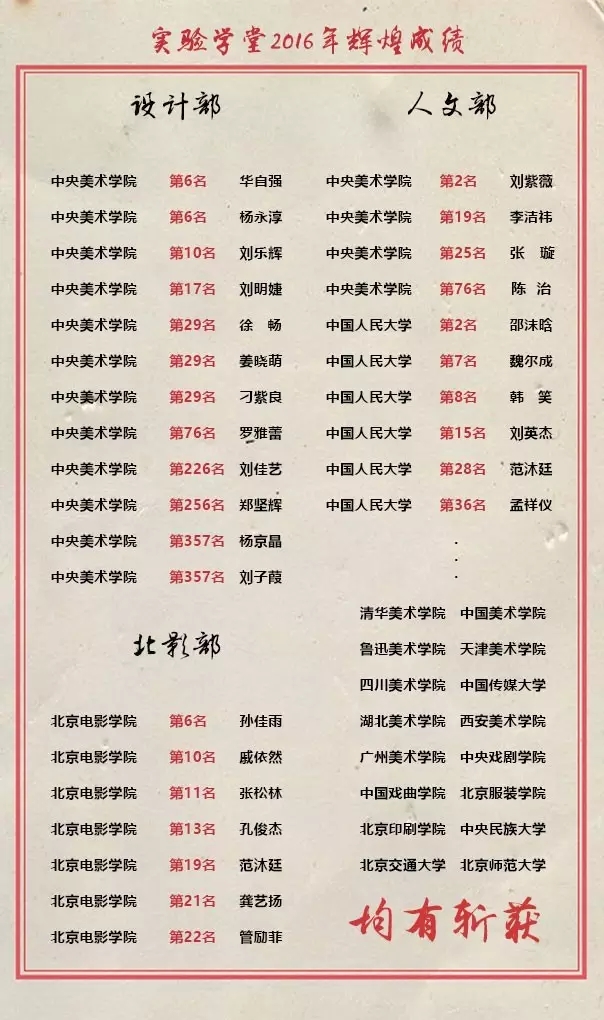 实验学堂2016年辉煌成绩
设计部
中央美术学院 第6名 华自强
中央美术学院 第6名 杨永淳
中央美术学院 第10名 刘乐辉
中央美术学院 第17名 刘明婕
中央美术学院 第29名 徐 畅
中央美术学院 第29名 姜晓萌
中央美术学院 第29名 刁紫良
中央美术学院 第76名 罗雅蕾
中央美术学院 第226名 刘佳艺
中央美术学院 第256名 郑坚辉
中央美术学院 第357名 杨京晶
中央美术学院 第357名 刘子葭
北影部
北京电影学院 第6名 孙佳雨
北京电影学院 第10名 戚依然
北京电影学院 第11名 张松林
北京电影学院 第13名 孔俊杰
北京电影学院 第19名 范沐廷
北京电影学院 第21名 龚艺扬
北京电影学院 第22名 管励菲
人文部
中央美术学院 第2名 刘紫薇
中央美术学院 第19名 李洁祎
中央美术学院 第25名 张 璇
中央美术学院 第76名 陈 治
中国人民大学 第2名 邵沫晗
中国人民大学 第7名 魏尔成
中国人民大学 第8名 韩 笑
中国人民大学 第15名 刘英杰
中国人民大学 第28名 范沐廷
中国人民大学 第36名 孟祥仪
.
.
.
清华美术学院 中国美术学院
鲁迅美术学院 天津美术学院
四川美术学院 中国传媒大学
湖北美术学院 西安美术学院
广州美术学院 中央戏剧学院
中国戏曲学院 北京服装学院
北京印刷学院 中央民族大学
北京交通大学 北京师范大学
均有斩获